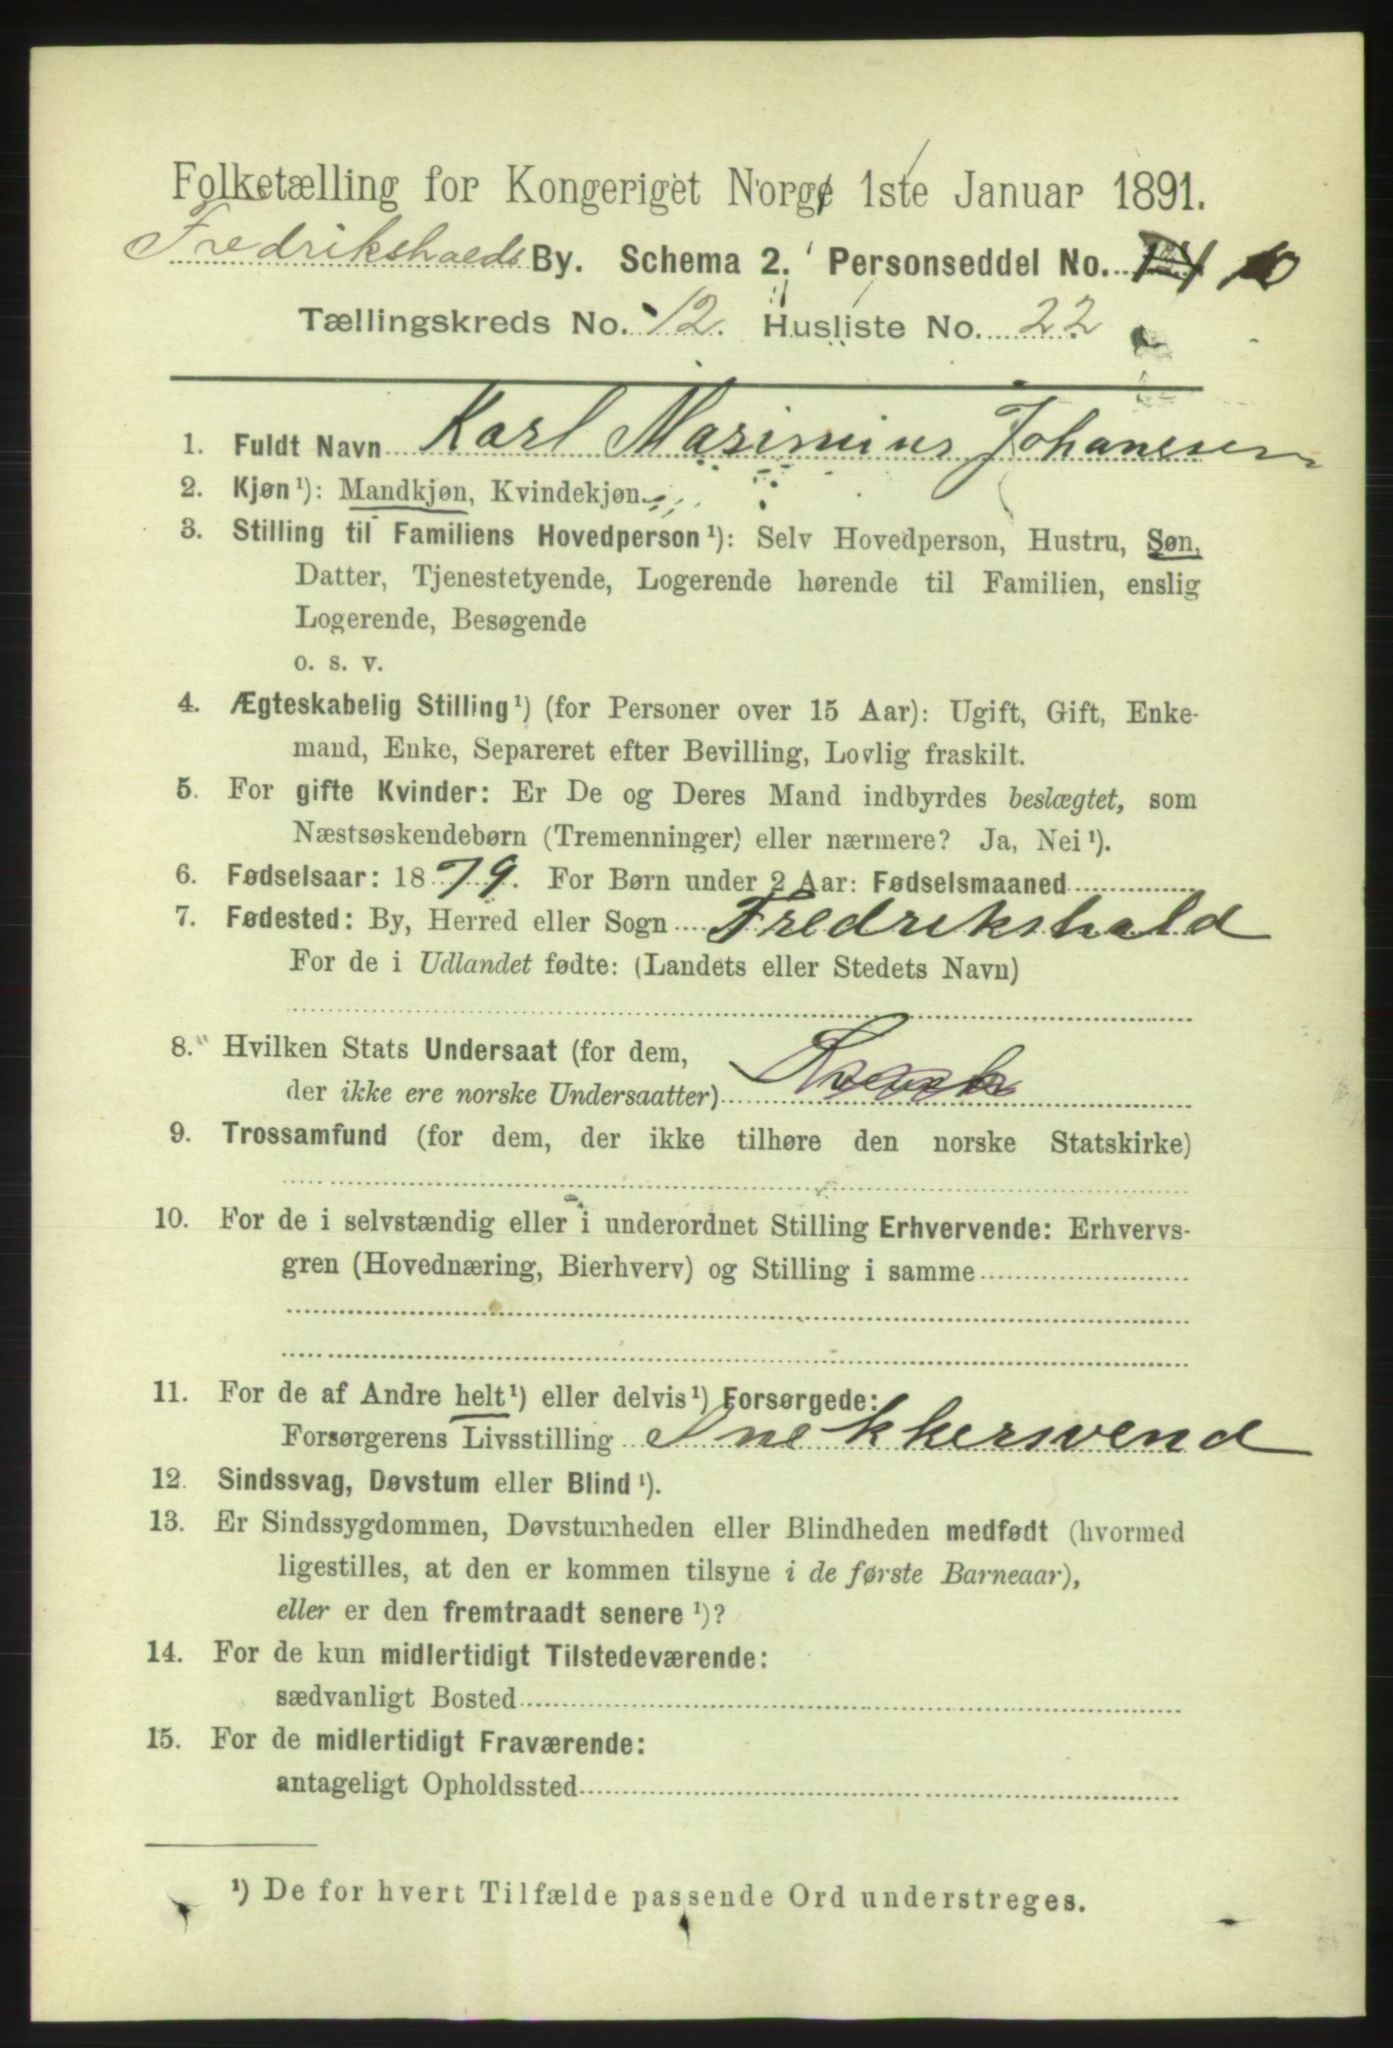 Folketælling for Kongeriget Norge 1ste Januar 1891.
Fredrikshalds By. Schema 2. Personseddel No. 10
Tællingskreds No. 12. Husliste No. 22
1. Fuldt Navn Karl Marinius Johanesen
2. Kjøn¹): Mandkjøn, Kvindekjøn.
3. Stilling til Familiens Hovedperson¹): Selv Hovedperson, Hustru, Søn,
Datter, Tjenestetyende, Logerende hørende til Familien, enslig
Logerende, Besøgende
o. s. v.
4. Ægteskabelig Stilling¹) (for Personer over 15 Aar): Ugift, Gift, Enke-
mand, Enke, Separeret efter Bevilling, Lovlig fraskilt.
5. For gifte Kvinder: Er De og Deres Mand indbyrdes beslægtet, som
Næstsøskendebørn (Tremenninger) eller nærmere? Ja, Nei¹).
6. Fødselsaar: 1879. For Børn under 2 Aar: Fødselsmaaned
7. Fødested: By, Herred eller Sogn Fredrikshald
For de i Udlandet fødte: (Landets eller Stedets Navn)
8. Hvilken Stats Undersaat (for dem,
der ikke ere norske Undersaatter) Svensk
9. Trossamfund (for dem, der ikke tilhøre den norske Statskirke)
10. For de i selvstændig eller i underordnet Stilling Erhvervende: Erhvervs-
gren (Hovednæring, Bierhverv) og Stilling i samme
11. For de af Andre helt¹) eller delvis¹) Forsørgede:
Forsørgerens Livsstilling Snekkersvend
12. Sindssvag, Døvstum eller Blind¹).
13. Er Sindssygdommen, Døvstumheden eller Blindheden medfødt (hvormed
ligestilles, at den er kommen tilsyne i de første Barneaar),
eller er den fremtraadt senere¹)?
14. For de kun midlertidigt Tilstedeværende:
sædvanligt Bosted
15. For de midlertidigt Fraværende:
antageligt Opholdssted
¹) De for hvert Tilfælde passende Ord understreges.